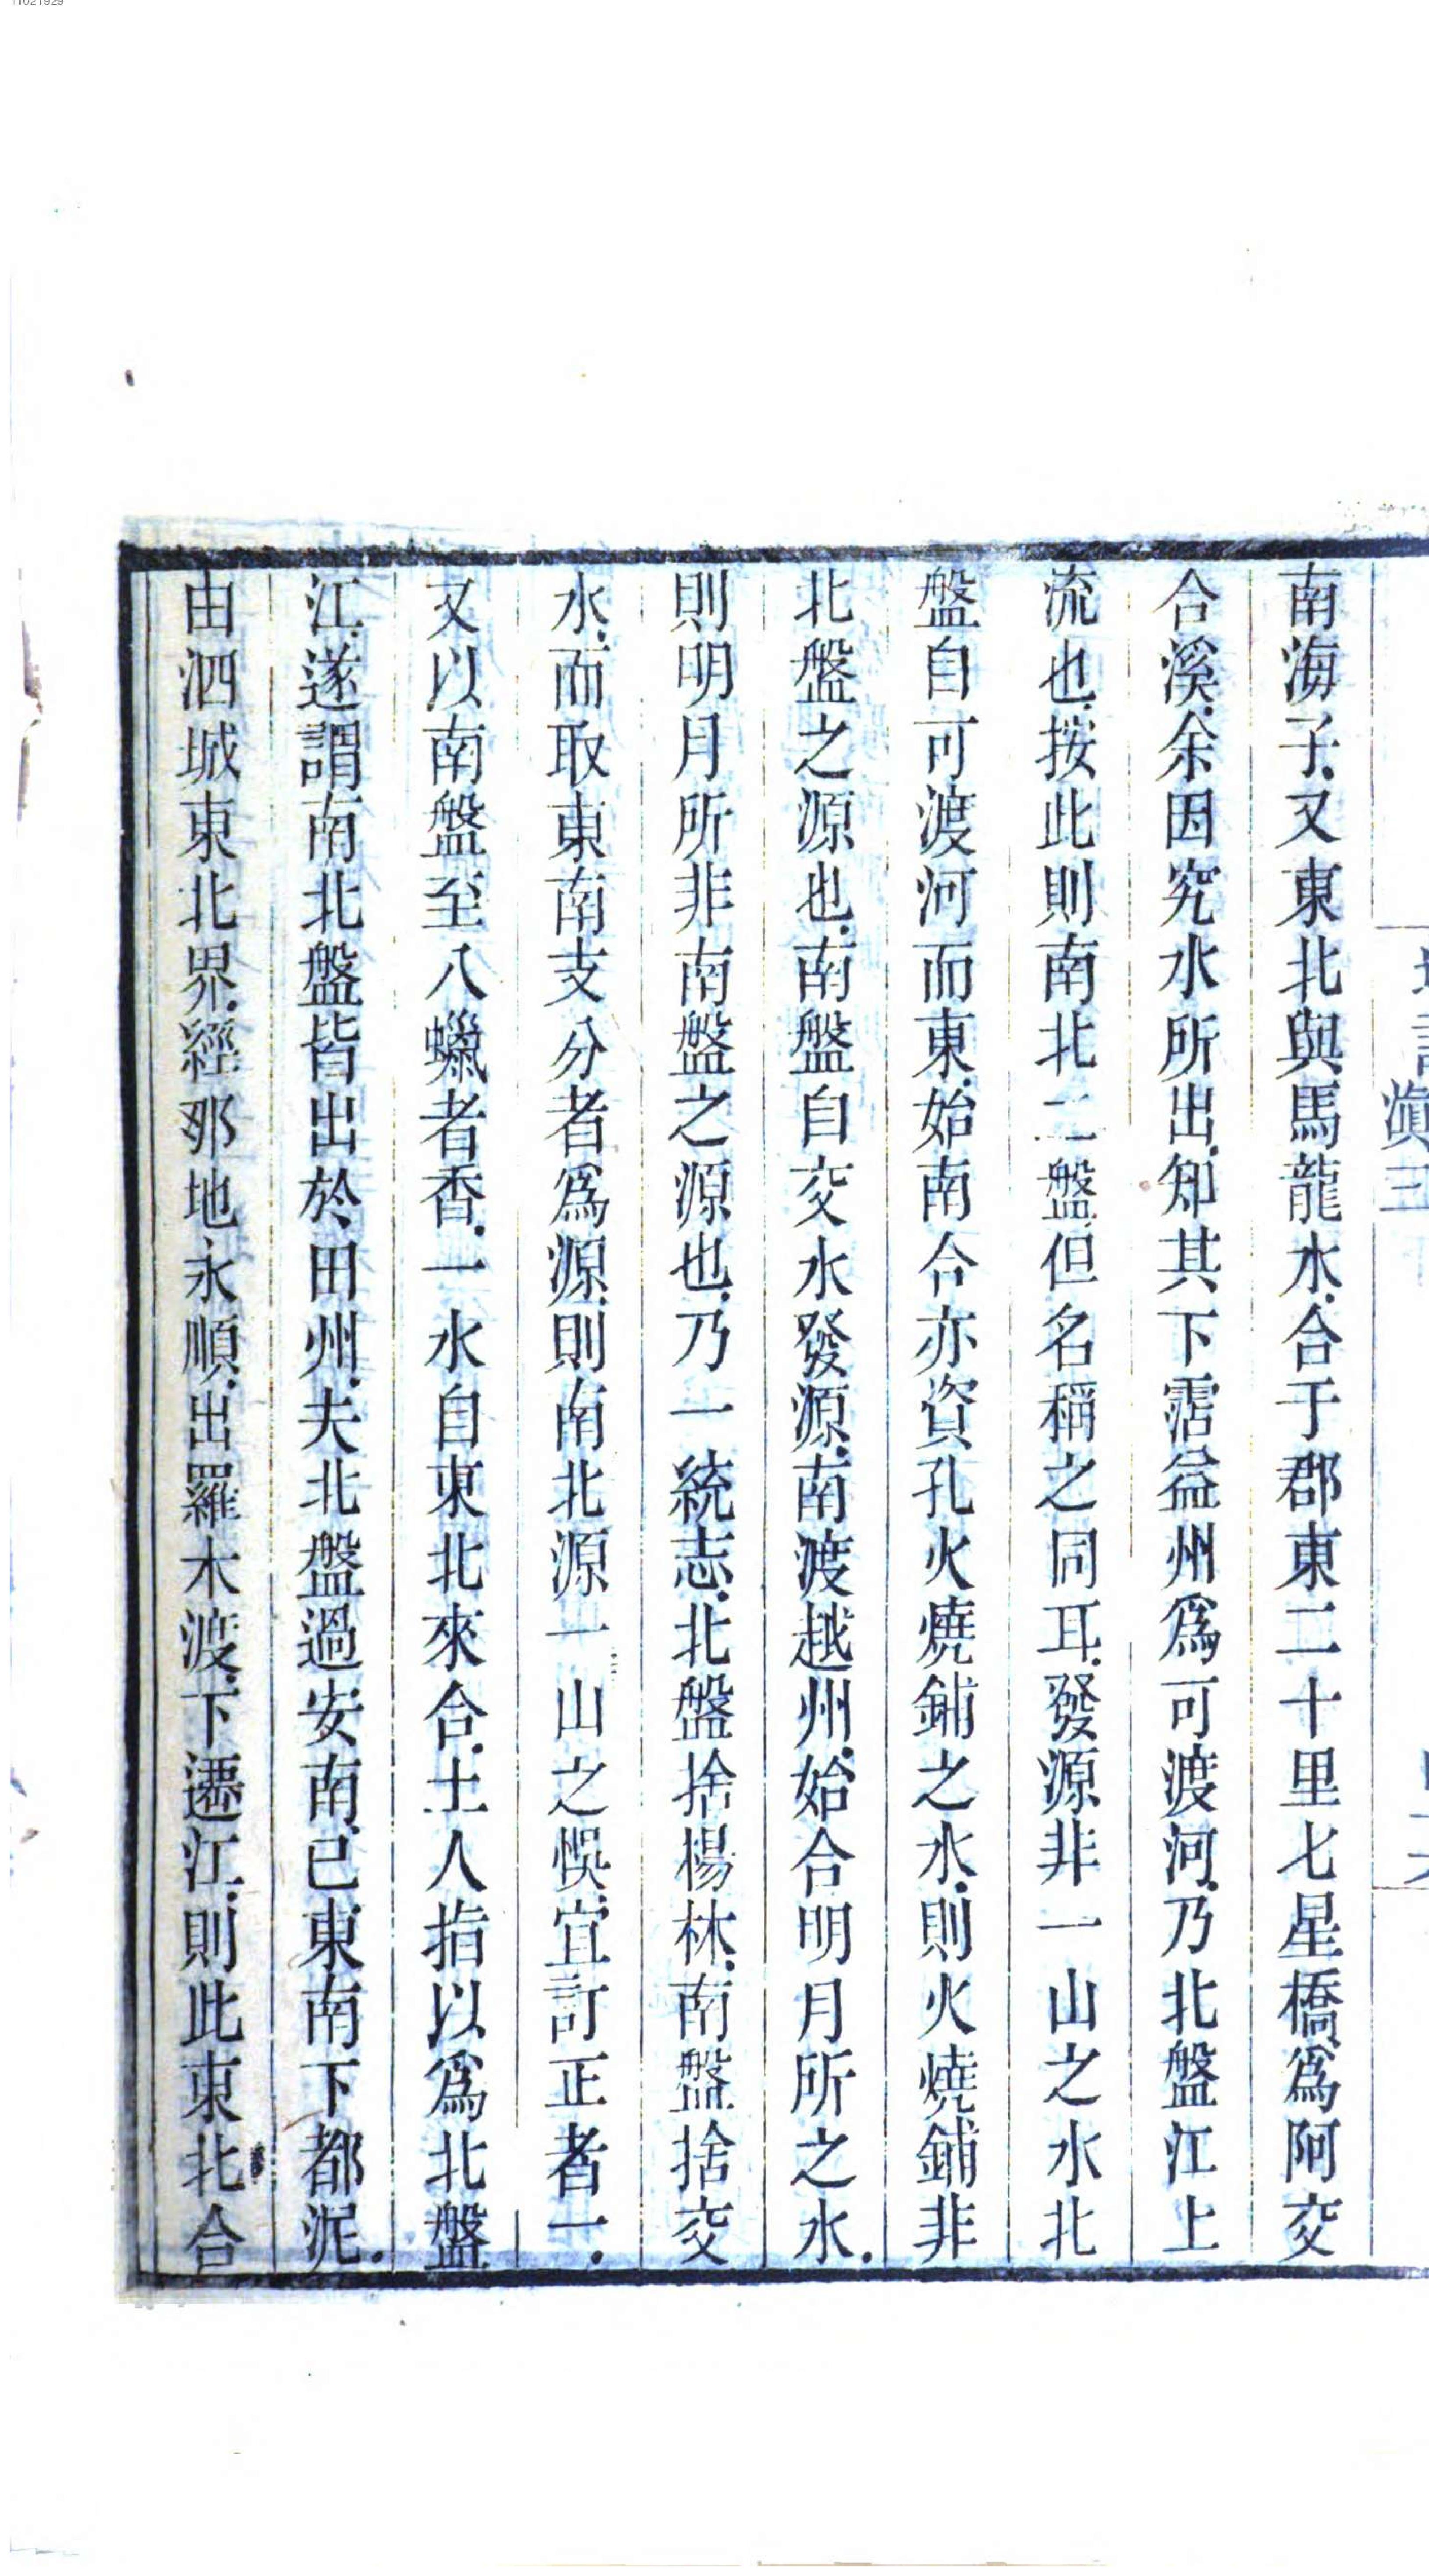 南海子.又東北與馬龍水.合于郡東二十里七星橋.爲阿交
合溪.余因究水所出.知其下霑益州爲可渡河.乃北盤江上
流也.按此則南北二盤.但名稱之同耳.發源非一山之水北
盤自可渡河而東.始南合亦資孔火燒鋪之水.則火燒鋪非
北盤之源也.南盤自交水發源.南渡越州.始合明月所之水.
則明月所非南盤之源也.乃一統志.北盤捨楊林.南盤捨交
水.而取東南支分者爲源.則南北源一山之悞.宜訂正者一.
又以南盤至八蠟者香.一水自東北來合.土人指以爲北盤
江.遂謂南北盤皆出於田州.夫北盤過安南.已東南下都泥.
由泗城東北界.經那地永順.出羅木渡.下遷江.則此東北合
滇三